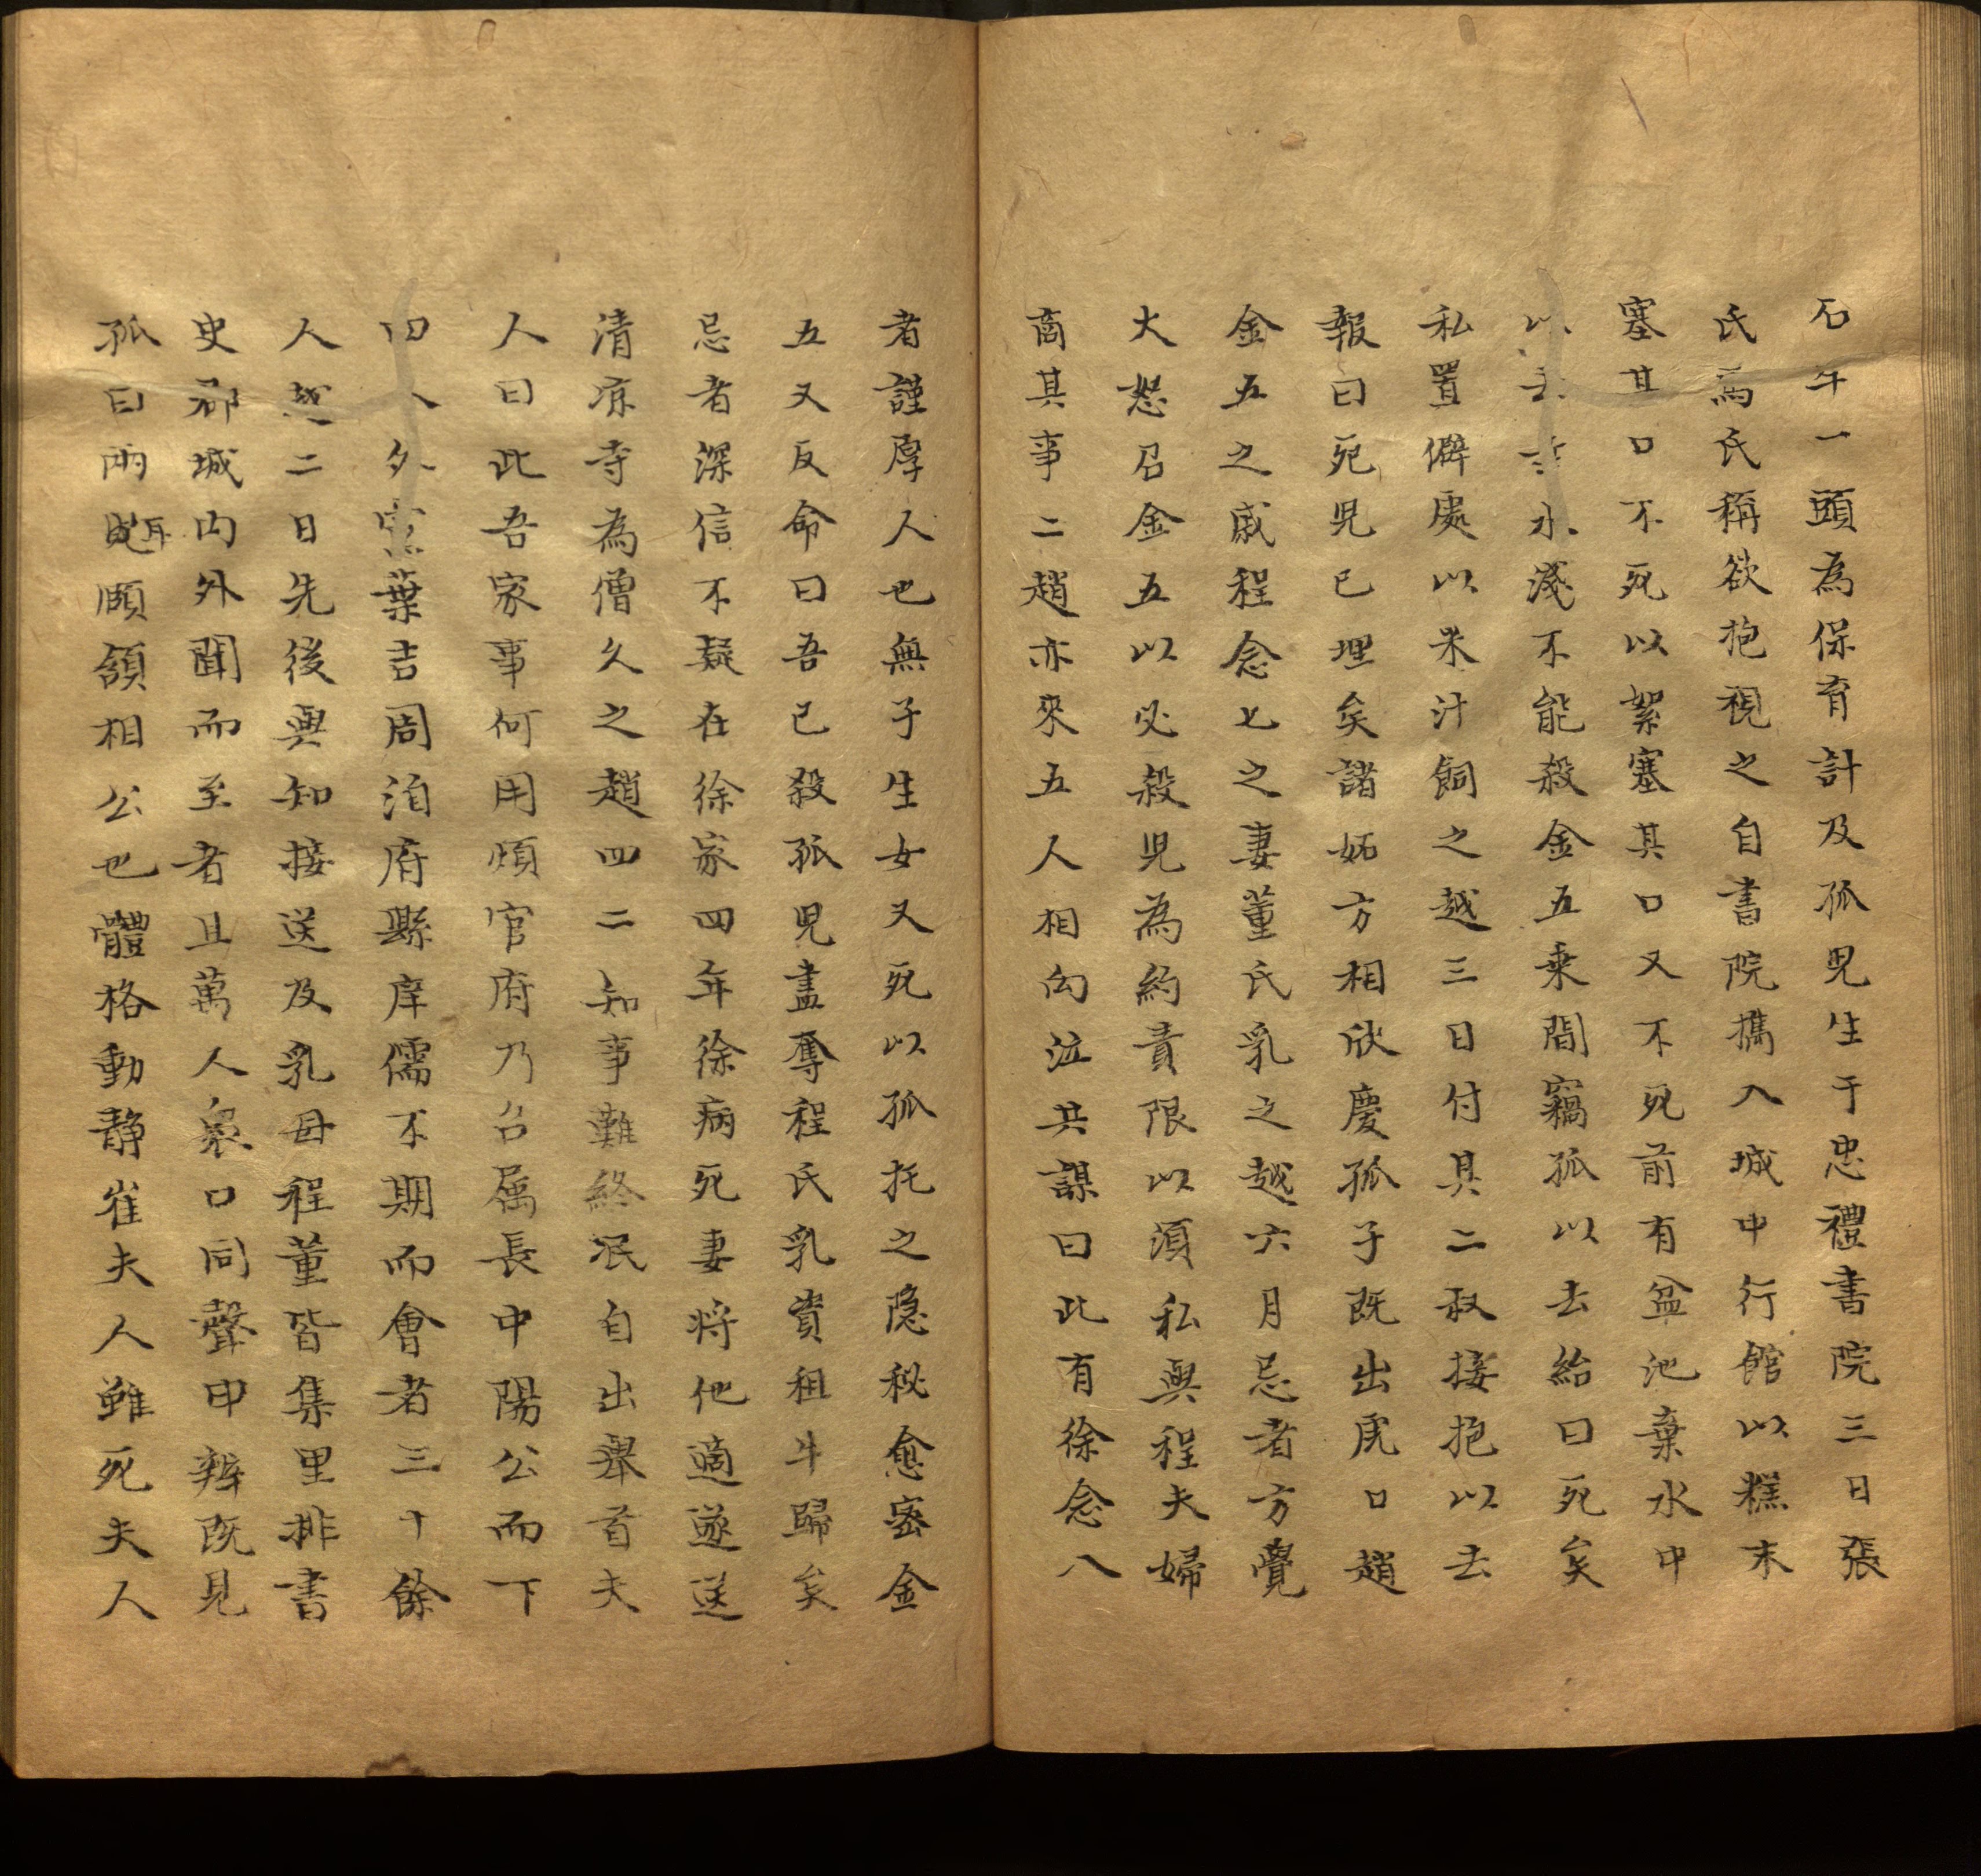 石牛一頭為保育計及孤兒生于忠禮書院三日張
氏馮氏稱欲抱視之自書院攜入城中行館以糕末
塞其口不死以絮塞其口又不死前有盆池棄水中
以去水淺不能殺金五乘間竊孤以去給曰死矣
私置僻處以米汁飼之越三日付具二叔接抱以去
報曰死兒已埋矣諸妬方相欣慶孤子既出虎口趙
金五之戚程念七之妻董氏乳之越六月忌者方覺
大怒召金五以必殺兒為約責限以須私與程夫婦
商其事二趙亦來五人相向泣共謀曰此有徐念八
者謹厚人也無子生女又死以孤托之隐秘愈密金
五又反命曰吾已殺孤兒盡奪程氏乳貲租牛歸矣
忌者深信不疑在徐家四年徐病死妻將他適遂送
清凉寺為僧久之趙四二知事難終泯自出舉首夫
人曰此吾家事何用煩官府乃召屬長中陽公而下
四人外宗葉吉周洎府縣庠儒不期而會者三十餘
人越二日先後輿知接送及乳母程董皆集里排書
史郡城内外聞而至者且萬人衆口同聲申辨既見
孤曰兩耳頤頷相公也體格動静崔夫人雖死夫人